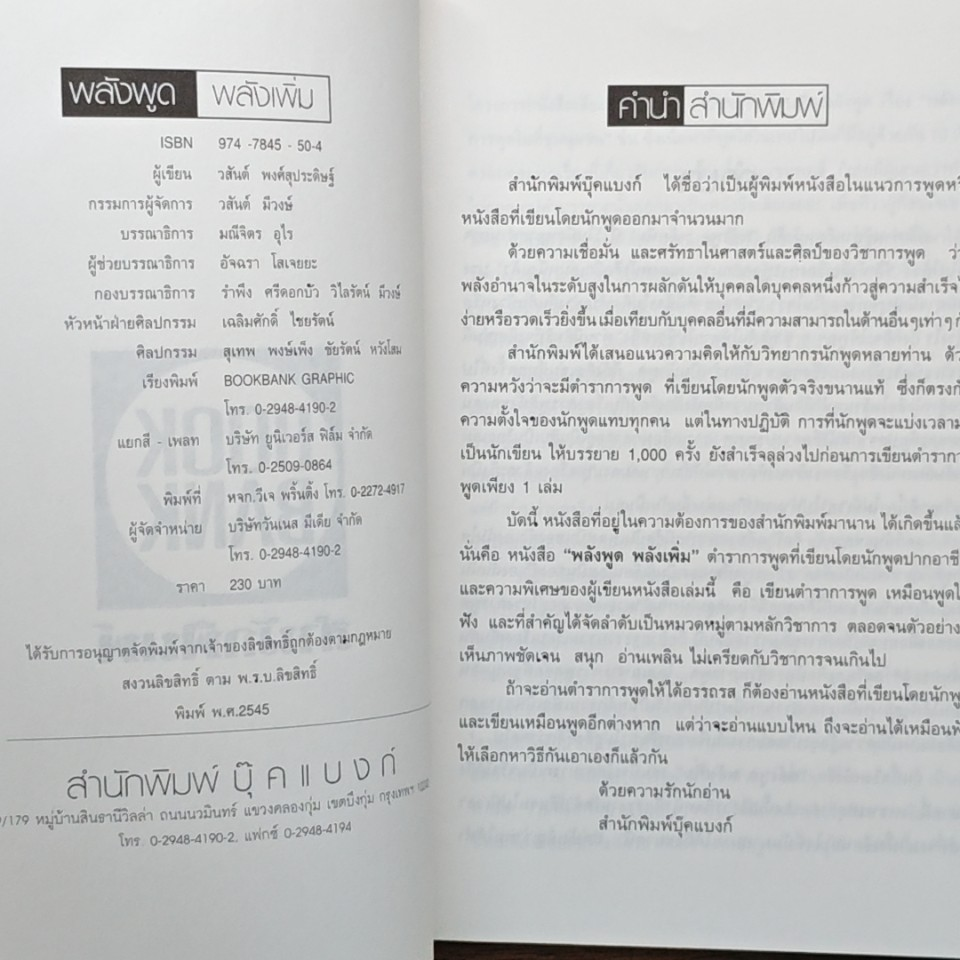 พลังพูด พลังเพิ่ม
ISBN 974 -7845 - 50-4
ผู้เขียน วสันต์ พงศ์สุประดิษฐ์
กรรมการผู้จัดการ วสันต์ มีวงษ์
บรรณาธิการ มณีจิตร อุไร
ผู้ช่วยบรรณาธิการ อัจฉรา โสเจยยะ
กองบรรณาธิการ รำพึง ศรีดอกบัว วิไลรัตน์ มีวงษ์
หัวหน้าฝ่ายศิลปกรรม เฉลิมศักดิ์ ไชยรัตน์
ศิลปกรรม สุเทพ พงษ์เพ็ง ชัยรัตน์ หวังโสม
เรียงพิมพ์ BOOKBANK GRAPHIC
โทร. 0-2948-4190-2
แยกสี - เพลท บริษัท ยูนิเวอร์ส ฟิล์ม จำกัด
โทร. 0-2509-0864
พิมพ์ที่ หจก.วีเจ พริ้นติ้ง โทร. 0-2272-4917
ผู้จัดจำหน่าย บริษัทวันเนส มีเดีย จำกัด
โทร. 0-2948-4190-2
ราคา 230 บาท
ได้รับการอนุญาตจัดพิมพ์จากเจ้าของลิขสิทธิ์ถูกต้องตามกฎหมาย
สงวนลิขสิทธิ์ ตาม พ.ร.บ.ลิขสิทธิ์
พิมพ์ พ.ศ.2545
สำนักพิมพ์ บุ๊คแบงก์
/179 หมู่บ้านสินธานีวิลล่า ถนนนวมินทร์ แขวงคลองกุ่ม เขตบึงกุ่ม กรุงเทพฯ
โทร. 0-2948-4190-2, แฟกซ์ 0-2948-4194
คำนำ สำนักพิมพ์
สำนักพิมพ์บุ๊คแบงก์ ได้ชื่อว่าเป็นผู้พิมพ์หนังสือในแนวการพูดหรื
หนังสือที่เขียนโดยนักพูดออกมาจำนวนมาก
ด้วยความเชื่อมั่น และศรัทธาในศาสตร์และศิลป์ของวิชาการพูด ว่า
พลังอำนาจในระดับสูงในการผลักดันให้บุคคลใดบุคคลหนึ่งก้าวสู่ความสำเร็จไ
ง่ายหรือรวดเร็วยิ่งขึ้น เมื่อเทียบกับบุคคลอื่นที่มีความสามารถในด้านอื่นๆเท่าๆกั
สำนักพิมพ์ได้เสนอแนวความคิดให้กับวิทยากรนักพูดหลายท่าน ด้ว
ความหวังว่าจะมีตำราการพูด ที่เขียนโดยนักพูดตัวจริงขนานแท้ ซึ่งก็ตรงกั
ความตั้งใจของนักพูดแทบทุกคน แต่ในทางปฏิบัติ การที่นักพูดจะแบ่งเวลาม
เป็นนักเขียน ให้บรรยาย 1,000 ครั้ง ยังสำเร็จลุล่วงไปก่อนการเขียนตำรากา
พูดเพียง 1 เล่ม
บัดนี้ หนังสือที่อยู่ในความต้องการของสำนักพิมพ์มานาน ได้เกิดขึ้นแล้
นั่นคือ หนังสือ “พลังพูด พลังเพิ่ม” ตำราการพูดที่เขียนโดยนักพูดปากอาชี
และความพิเศษของผู้เขียนหนังสือเล่มนี้ คือ เขียนตำราการพูด เหมือนพูดใ
ฟัง และที่สำคัญได้จัดลำดับเป็นหมวดหมู่ตามหลักวิชาการ ตลอดจนตัวอย่าง
เห็นภาพชัดเจน สนุก อ่านเพลิน ไม่เครียดกับวิชาการจนเกินไป
ถ้าจะอ่านตำราการพูดให้ได้อรรถรส ก็ต้องอ่านหนังสือที่เขียนโดยนักพู
และเขียนเหมือนพูดอีกต่างหาก แต่ว่าจะอ่านแบบไหน ถึงจะอ่านได้เหมือนฟั
ให้เลือกหาวิธีกันเอาเองก็แล้วกัน
ด้วยความรักนักอ่าน
สำนักพิมพ์บุ๊คแบงก์